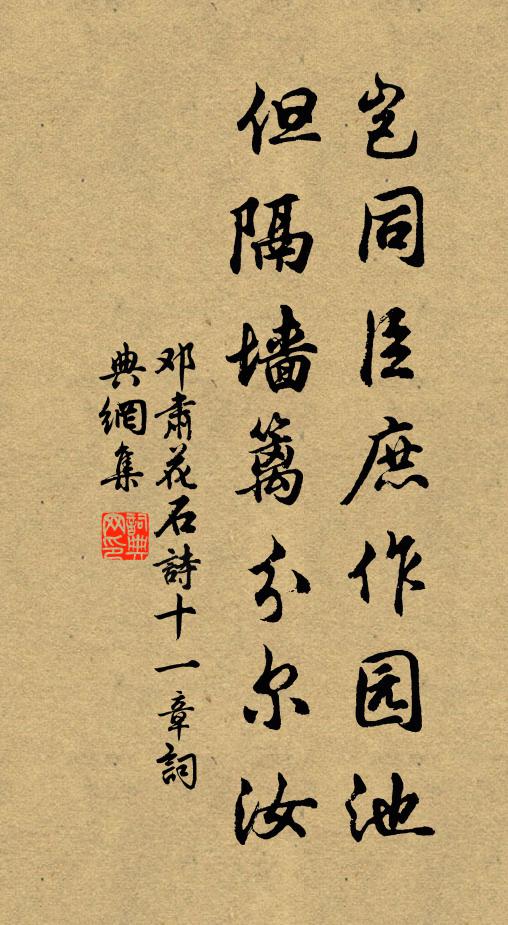 岂同臣庶作园池
但隔墙篱分尔汝
邓肃花石詩十一章詞
典網集
詞典网印